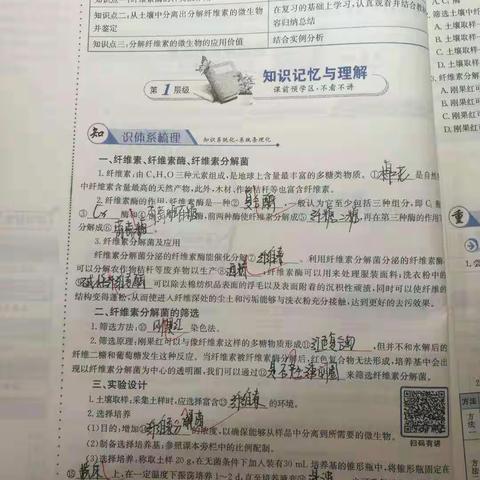 知识点二:从土壤中分离出分解纤维素的微生物
并鉴定
在复习的基础上学习,认真观看并结合教
容归纳总结
知识点三:分解纤维素的微生物的应用价值
结合实例分析
第1层级
知识记忆与理解
课前预学区·不看不讲
知
识体系梳理
知识系统化·系统条理化
一、纤维素、纤维素酶、纤维素分解菌
1.纤维素:由C、H、O三种元素组成,是地球上含量最丰富的多糖类物质。① 棉花 是自然
中纤维素含量最高的天然产物,此外,木材、作物秸秆等也富含纤维素。
2.纤维素酶的作用:纤维素酶是一种② 复合酶 ,一般认为它至少包括三种组分,即C₁酶
③ Cx 酶和④ 葡萄糖苷酶 ,前两种酶使纤维素分解成⑤ 纤维二糖 ,再在第三种酶的作用下
分解成⑥ 葡萄糖 。
3.纤维素分解菌及应用
纤维素分解菌分泌的纤维素酶能催化分解⑦ 纤维素 。利用纤维素分解菌分泌的纤维素酶
可以分解农作物秸秆等废弃物以生产⑧ ,纤维素酶可以用来处理服装面料;洗衣粉中的
⑨ 纤维素酶 可以除去棉纺织品表面的浮毛以及表面附着的沉积性顽渍,同时可以使纤维的
结构变得蓬松,从而使进入纤维深处的尘土和污垢能够与洗衣粉充分接触,达到更好的去污效果。
二、纤维素分解菌的筛选
1.筛选方法:⑩ 刚果红 染色法。
2.筛选原理:刚果红可以与像纤维素这样的多糖物质形成⑪ 红色复合物 ,但并不和水解后的
纤维二糖和葡萄糖发生这种反应。当纤维素被纤维素酶分解后,红色复合物无法形成,培养基中会出
现以纤维素分解菌为中心的透明圈,我们可以通过⑫ 是否产生透明圈 来筛选纤维素分解菌。
三、实验设计
1.土壤取样:采集土样时,应选择富含⑬ 纤维素 的环境。
2.选择培养
(1)目的:增加⑭ 纤维素分解菌 的浓度,以确保能够从样品中分离到所需要的微生物。
(2)制备选择培养基:参照课本旁栏中的比例配制。
(3)选择培养:称取土样20 g,在无菌条件下加入装有30 mL培养基的锥形瓶中,将锥形瓶固定在
⑮ 摇床 上,在一定温度下振荡培养1~2 d,直至培养液变⑯
扫码有讲
筛选土壤中纤
A.土壤取样
B.土壤取样—
C.土壤取样
D.土壤取样
3.纤维素分
A.刚果红可
B.刚果红可
C.刚果红可
D.刚果红可
重
1.尝
方法
方法一